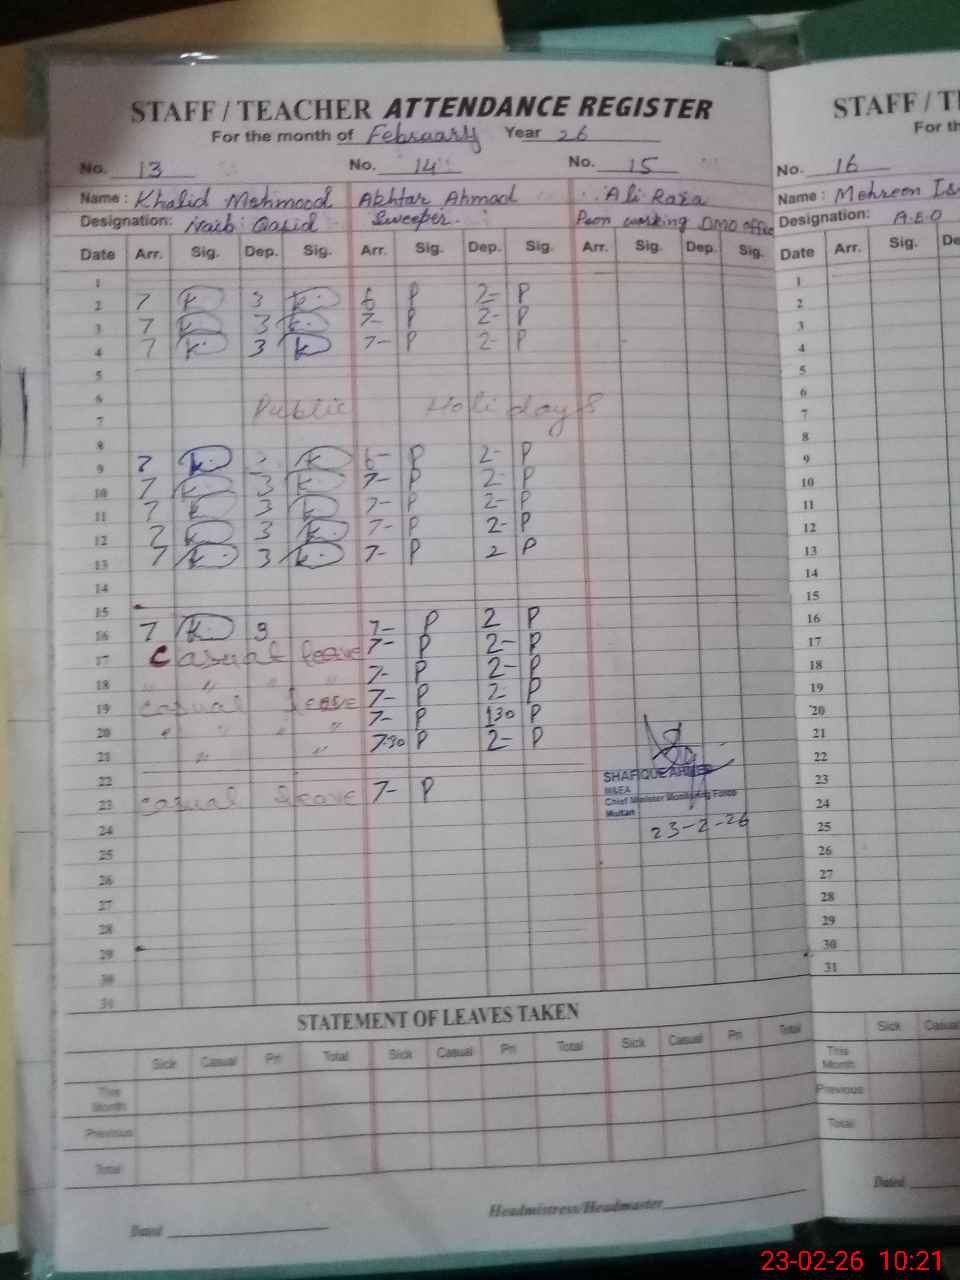 STAFF / TEACHER ATTENDANCE REGISTER
For the month of February Year 26
No. 13 No. 14 No. 15
Name : Khalid Mehmood Akhtar Ahmad Ali Raza
Designation: Naib Qasid Sweeper. Peon working DMO office
Date Arr. Sig. Dep. Sig. Arr. Sig. Dep. Sig. Arr. Sig. Dep. Sig.
1
2 7 K 3 K 6 P 2- P
3 7 K 3 K 7- P 2- P
4 7 K 3 K 7- P 2- P
5
6
7 Public Holidays
8
9 7 K K 6- P 2- P
10 7 K 3 K 7- P 2- P
11 7 K 3 K 7- P 2- P
12 7 K 3 K 7- P 2- P
13 7 K 3 K 7- P 2 P
14
15
16 7 K 3 7- P 2 P
17 Casual leave 7- P 2- P
18 " " " " 7- P 2- P
19 Casual leave 7- P 2- P
20 " " " " 7- P 130 P
21 " " 7:30 P 2- P
22
23 Casual leave 7- P
24
25
26
27
28
29
30
31
SHAFIQUE AHMED
M&EA
Chief Minister Monitoring Force
Multan
23-2-26
STATEMENT OF LEAVES TAKEN
Sick Casual Pri Total Sick Casual Pri Total Sick Casual Pri Total
This Month
Previous
Total
Dated
Headmistress/Headmaster
STAFF / T
For th
No. 16
Name : Mehreen
Designation: A.E.O
Date Arr. Sig. De
1
2
3
4
5
6
7
8
9
10
11
12
13
14
15
16
17
18
19
20
21
22
23
24
25
26
27
28
29
30
31
Sick Casual
This Month
Previous
Total
Dated
23-02-26 10:21